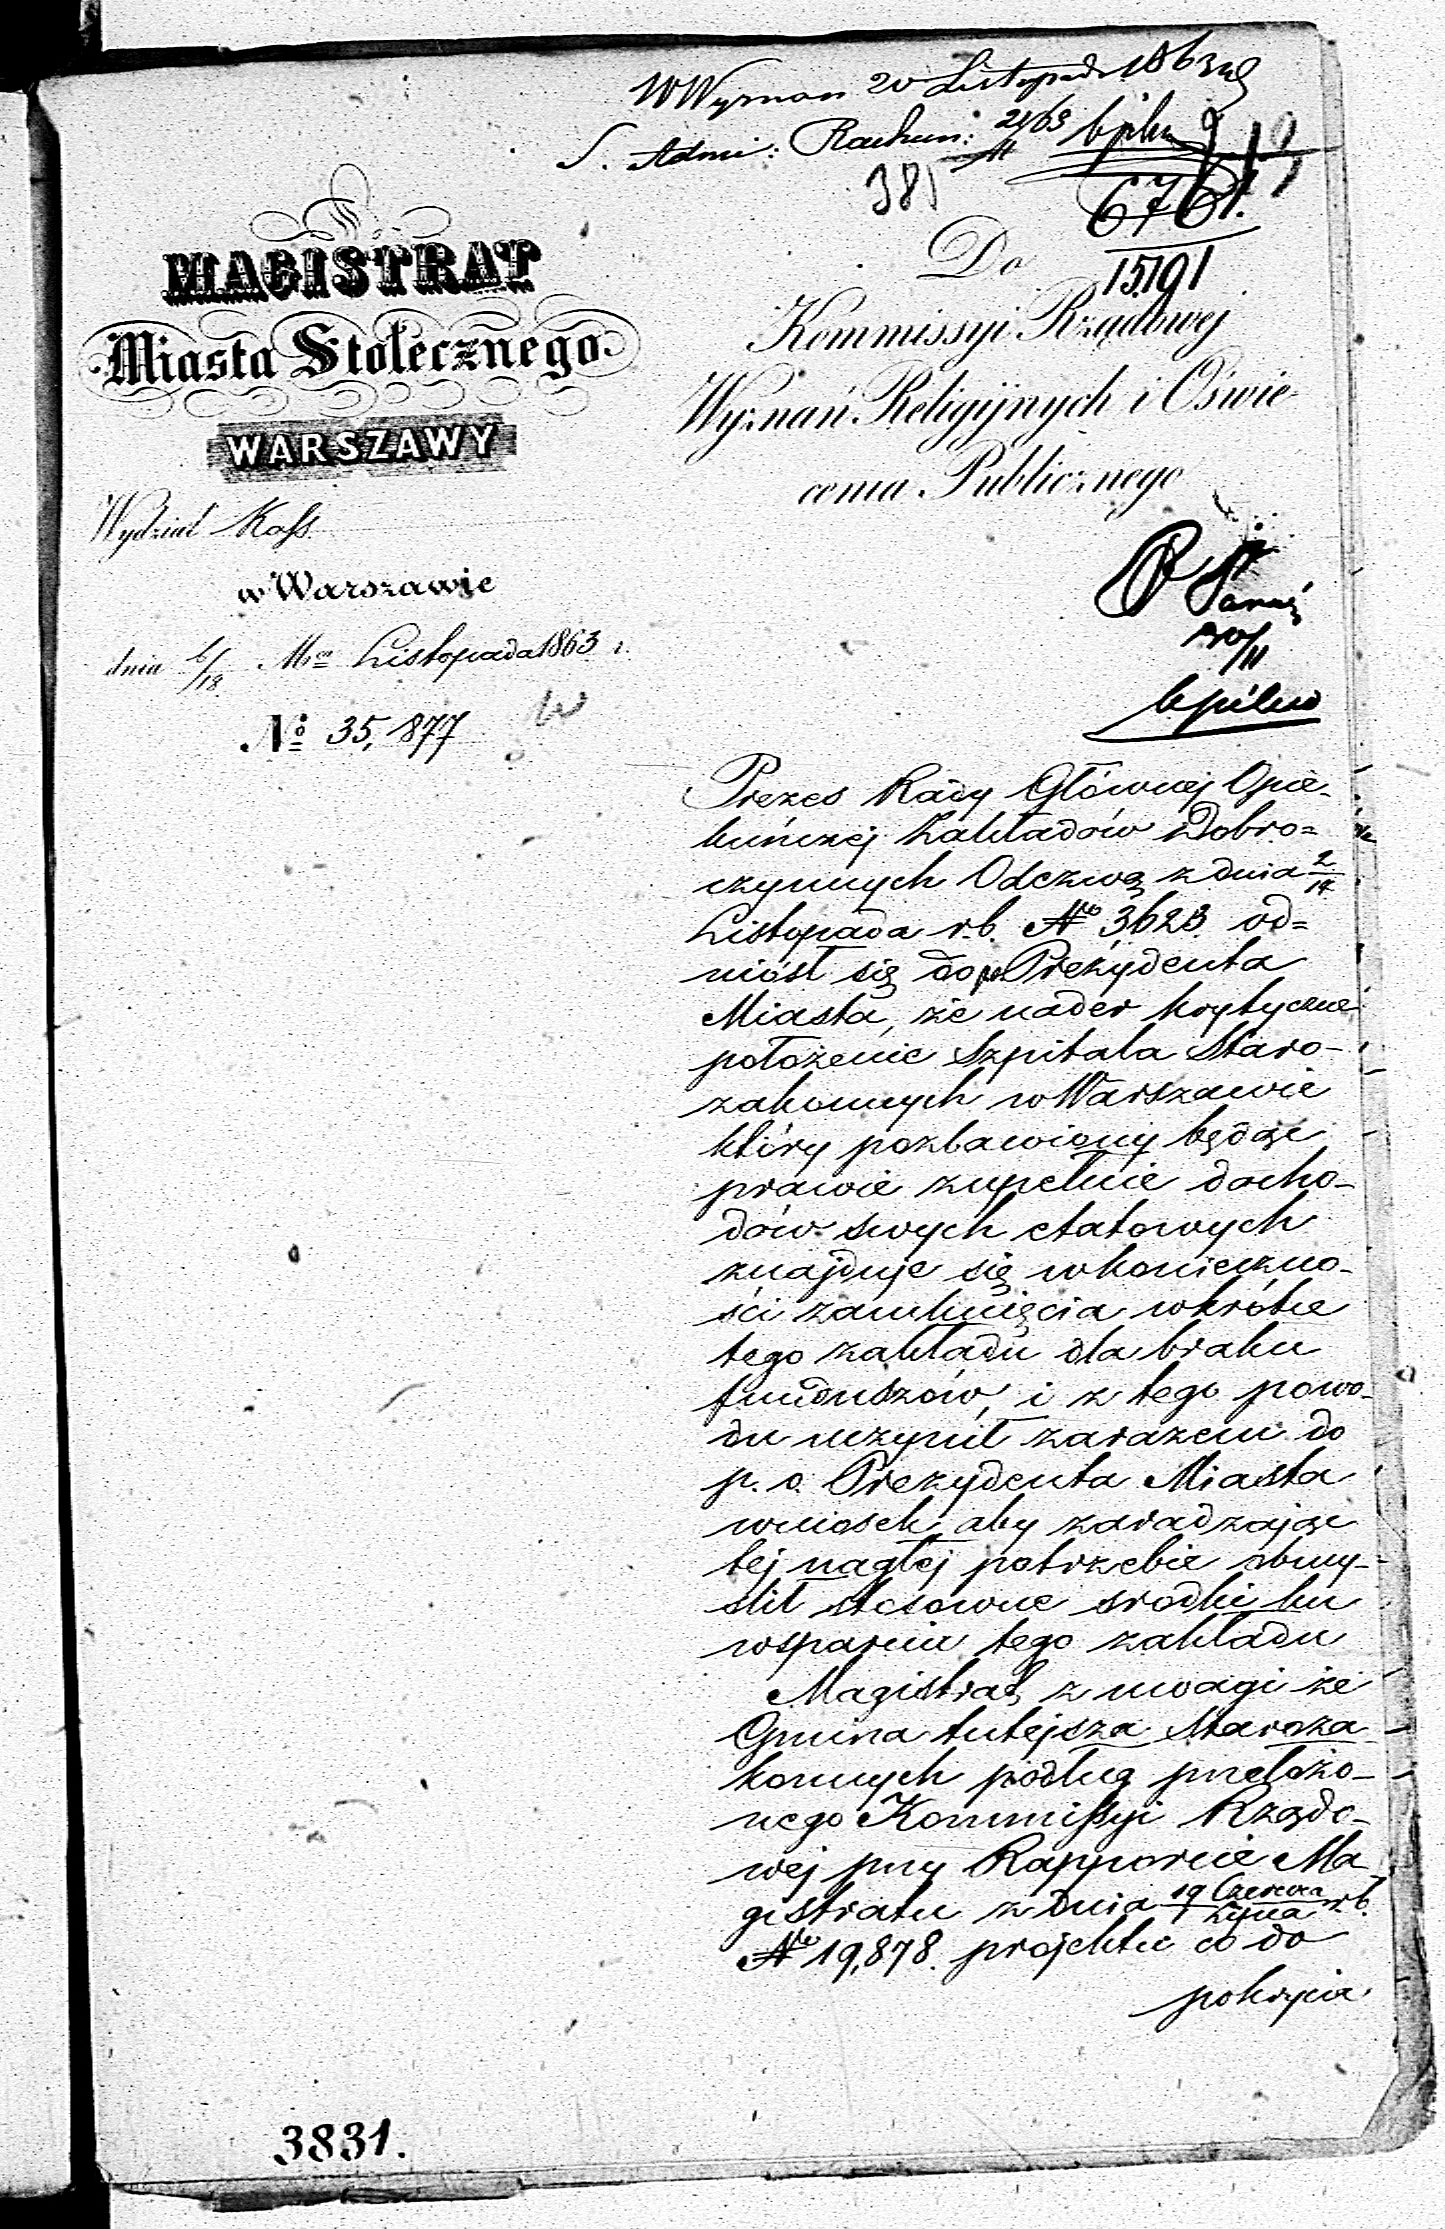 W Wyznań 20 Listopada 1863
S. Admi: Rachun: 21/63
381
6761.
15191
MAGISTRAT
Miasta Stołecznego
WARSZAWY
Wydział Kass.
w Warszawie
dnia 6/18 Mca Listopada 1863 r.
No 35,877
Do
Kommissyi Rządowej
Wyznań Religijnych i Oświe-
cenia Publicznego
20/11
b pilno
Prezes Rady Głównej Opie-
kuńczej Zakładów Dobro=
czynnych Odezwą z dnia 2/14
Listopada r.b. No 3623. od=
niósł się do p Prezydenta
Miasta, że nader krytyczne
położenie Szpitala Staro-
zakonnych w Warszawie
który pozbawiony będąc
prawie zupełnie docho-
dów swych etatowych
znajduje się w konieczno-
ści zamknięcia wkrótce
tego zakładu dla braku
funduszów, i z tego powo-
du uczynił zarazem do
p. o. Prezydenta Miasta
wniosek aby zaradzając
tej nagłej potrzebie obmy-
ślił stosowne srodki ku
wsparciu tego zakładu
Magistrat z uwagi że
Gmina tutejsza Staroza
konnych podług przełożo-
nego Kommissyi Rządo-
wej przy Rapporcie Ma
gistratu z dnia 19 Czerwca/1 Lipca r.b.
No 19,878. projektu co do
pokrycia
3831.